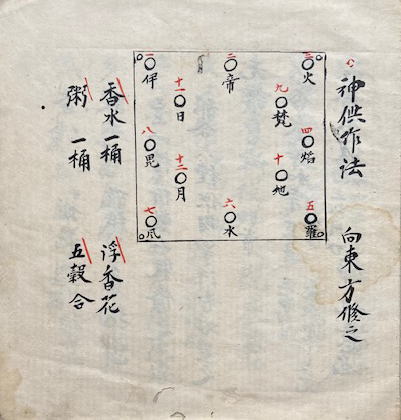 神供作法　向東方修之
三〇火
四〇焔
五〇羅
九〇梵
十〇地
二〇帝
六〇水
十一〇日
十二〇月
一〇伊
八〇毘
七〇風
香水一桶　浮香花
粥一桶　五穀合